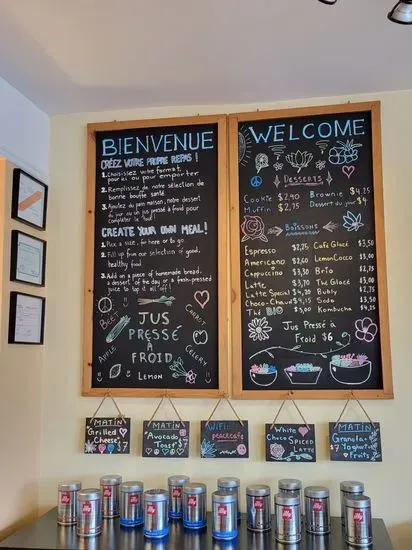 BIENVENUE
CRÉEZ VOTRE PROPRE REPAS!
1. Choisissez votre format,
pour ici ou pour emporter
2. Remplissez de notre sélection de
bonne bouffe santé
3. Ajoutez du pain maison, notre dessert
du jour ou un jus pressé à froid pour
compléter le tout!
CREATE YOUR OWN MEAL!
1. Pick a size, for here or to go
2. Fill up from our selection of good,
healthy food
3. Add on a piece of homemade bread,
a dessert of the day or a fresh-pressed
juice
BEET
CARROT
JUS
PRESSÉ
À
FROID
APPLE
CELERY
LEMON
WELCOME
DESSERTS
Cookie $2,40 Brownie $4,25
Muffin $2,75 Dessert du jour $4
BOISSONS
Espresso $2,75 Café Glacé $3,50
Americano $2,60 LemonCocco $3,00
Cappuccino $3,30 Brio
Latte $3,70 Thé Glacé
Latte Special $4,20 Bubly
Choco-Chaud $4,15 Soda
Thé BIO $3,00 Kombucha $4,75
Jus Pressé à
Froid $6
MATIN
Grilled
Cheese $7
MATIN
Avocado
Toast
WIFI
peacecafe
White
Choco Spiced
Latte
MATIN
Granola
Yoghurt
Fruits
illy
illy
illy
illy
illy
illy
illy
illy
illy
illy
illy